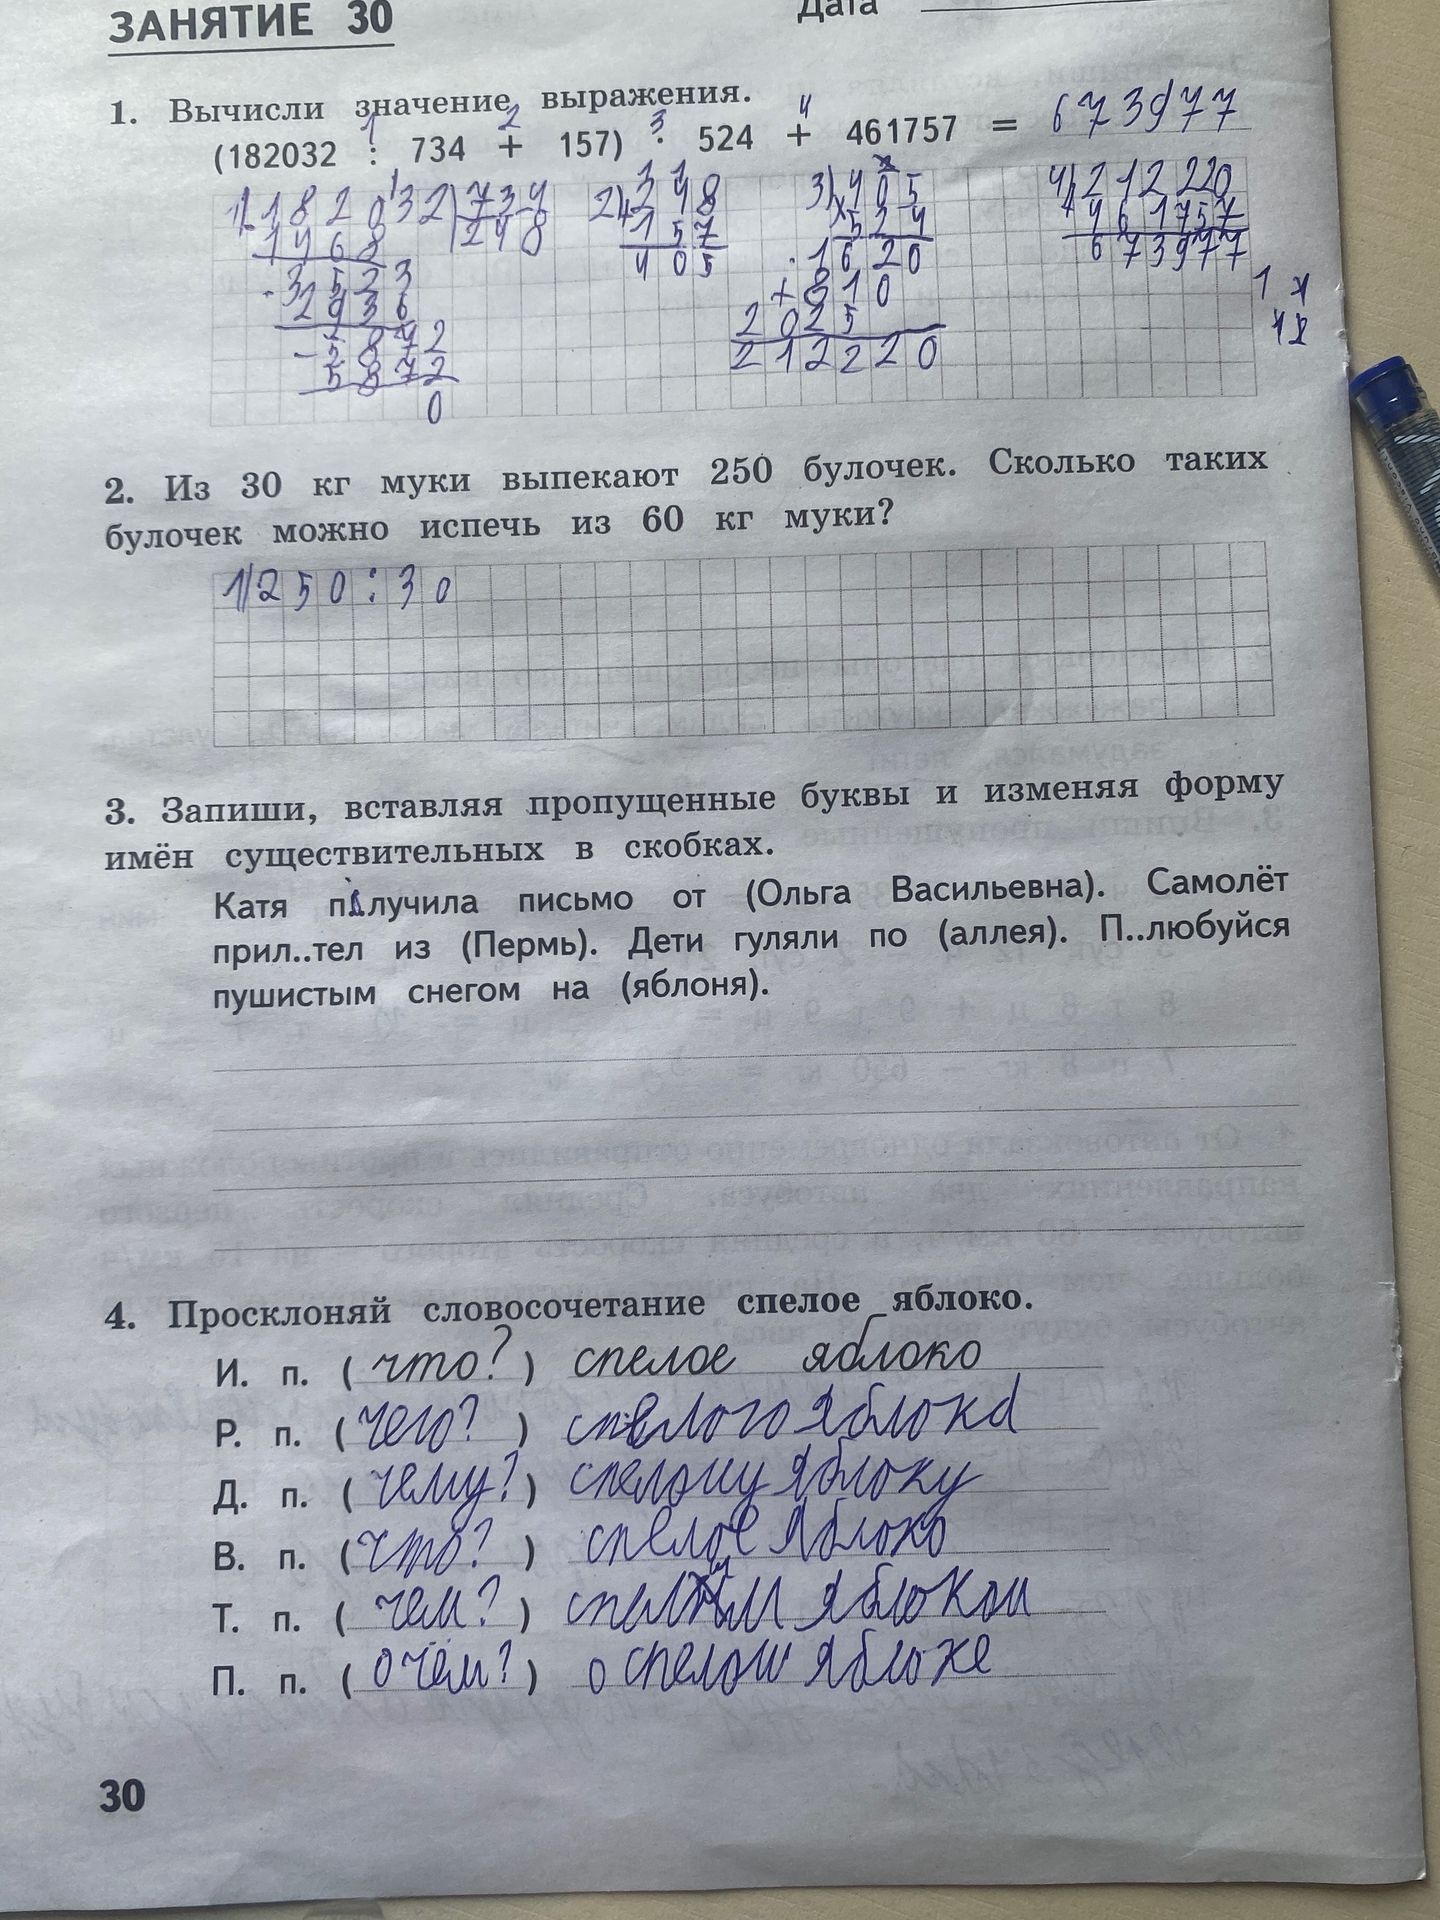 ЗАНЯТИЕ 30 Дата
1. Вычисли значение выражения.
1 2 3 4
(182032 : 734 + 157) · 524 + 461757 = 673977
1) 182032 734
1468 248
3523
2936
5872
5872
0
2) 248
+ 157
405
3) 405
× 524
1620
+ 810
2025
212220
4) 212220
+ 461757
673977
2. Из 30 кг муки выпекают 250 булочек. Сколько таких
булочек можно испечь из 60 кг муки?
1) 250 : 30
3. Запиши, вставляя пропущенные буквы и изменяя форму
имён существительных в скобках.
Катя получила письмо от (Ольга Васильевна). Самолёт
прил..тел из (Пермь). Дети гуляли по (аллея). П..любуйся
пушистым снегом на (яблоня).
4. Просклоняй словосочетание спелое яблоко.
И. п. ( что? ) спелое яблоко
Р. п. ( чего? ) спелого яблока
Д. п. ( чему? ) спелому яблоку
В. п. ( что? ) спелое яблоко
Т. п. ( чем? ) спелым яблоком
П. п. ( о чём? ) о спелом яблоке
30